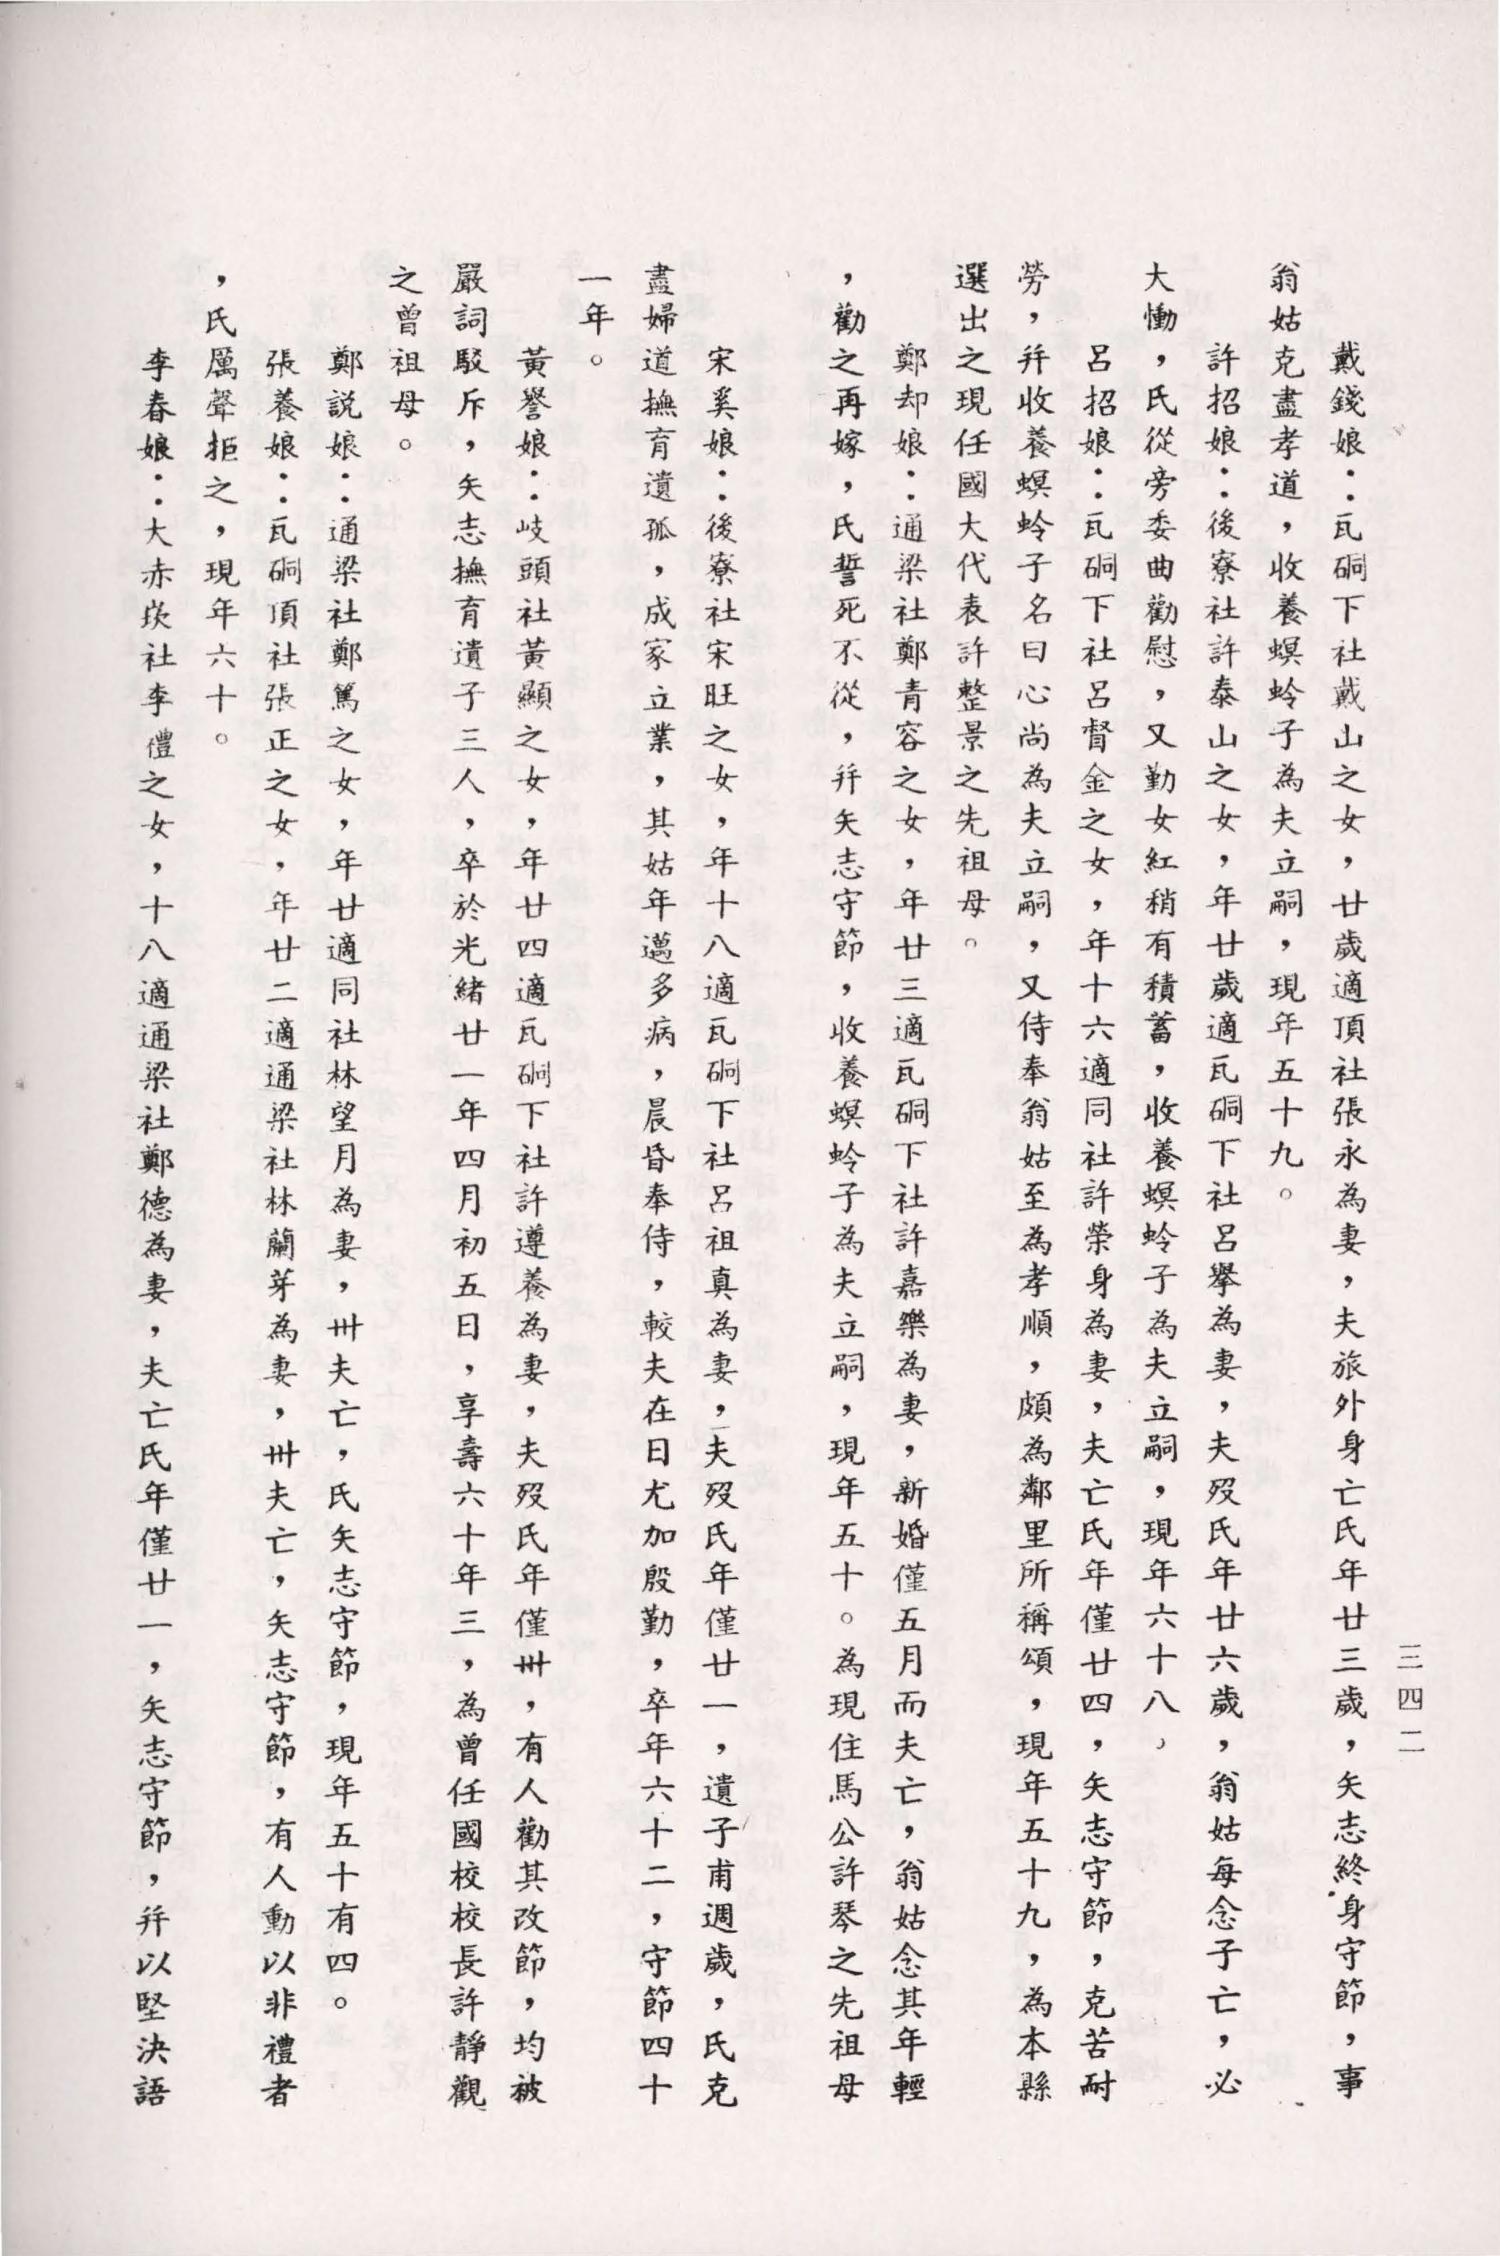 三四二
戴錢娘：瓦硐下社戴山之女，廿歲適頂社張永為妻，夫旅外身亡氏年廿三歲，矢志終身守節，事
翁姑克盡孝道，收養螟蛉子為夫立嗣，現年五十九。
許招娘：後寮社許泰山之女，年廿歲適瓦硐下社呂擧為妻，夫歿氏年廿六歲，翁姑每念子亡，必
大慟，氏從旁委曲勸慰，又勤女紅稍有積蓄，收養螟蛉子為夫立嗣，現年六十八，
呂招娘：瓦硐下社呂督金之女，年十六適同社許榮身為妻，夫亡氏年僅廿四，矢志守節，克苦耐
勞，幷收養螟蛉子名曰心尚為夫立嗣，又侍奉翁姑至為孝順，頗為鄰里所稱頌，現年五十九，為本縣
選出之現任國大代表許整景之先祖母。
鄭却娘：通梁社鄭青容之女，年廿三適瓦硐下社許嘉樂為妻，新婚僅五月而夫亡，翁姑念其年輕
，勸之再嫁，氏誓死不從，幷矢志守節，收養螟蛉子為夫立嗣，現年五十。為現住馬公許琴之先祖母
宋奚娘：後寮社宋旺之女，年十八適瓦硐下社呂祖真為妻，夫歿氏年僅廿一，遺子甫週歲，氏克
盡婦道撫育遺孤，成家立業，其姑年邁多病，晨昏奉侍，較夫在日尤加殷勤，卒年六十二，守節四十
一年。
黃譽娘：岐頭社黃顯之女，年廿四適瓦硐下社許遵養為妻，夫歿氏年僅卅，有人勸其改節，均被
嚴詞駁斥，矢志撫育遺子三人，卒於光緒廿一年四月初五日，享壽六十年三，為曾任國校校長許靜觀
之曾祖母。
鄭説娘：通梁社鄭篤之女，年廿適同社林望月為妻，卅夫亡，氏矢志守節，現年五十有四。
張養娘：瓦硐頂社張正之女，年廿二適通梁社林蘭芽為妻，卅夫亡，矢志守節，有人動以非禮者
，氏厲聲拒之，現年六十。
李春娘：大赤崁社李禮之女，十八適通梁社鄭德為妻，夫亡氏年僅廿一，矢志守節，幷以堅決語